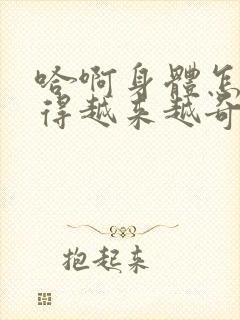 哈啊身體怎
得越来越奇
抱起来